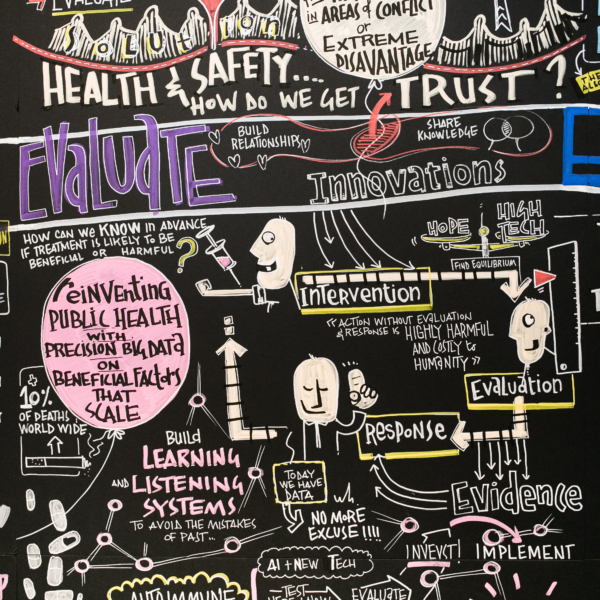 EVALUATE
SOLUTION
IN AREAS of CONFLICT
OR
EXTREME
DISAVANTAGE
HEALTH & SAFETY....
HOW DO WE GET TRUST?
EVALUATE
BUILD
RELATIONSHIPS
SHARE
KNOWLEDGE
Innovations
HOW CAN WE KNOW IN ADVANCE
IF TREATMENT IS LIKELY TO BE
BENEFICIAL OR HARMFUL ?
HOPE
HIGH
TECH
FIND EQUILIBRIUM
INTERVENTION
"ACTION WITHOUT EVALUATION
& RESPONSE IS HIGHLY HARMFUL
AND COSTLY to
HUMANITY"
REINVENTING
PUBLIC HEALTH
WITH
PRECISION BIG DATA
ON
BENEFICIAL FACTORS
THAT
SCALE
Evaluation
10%
OF DEATHS
WORLD WIDE
RESPONSE
BUILD
LEARNING
AND LISTENING
SYSTEMS
TO AVOID THE MISTAKES
OF PAST...
TODAY
WE HAVE
DATA
NO MORE
EXCUSE !!!!
Evidence
INVEST!
IMPLEMENT
AI + NEW TECH
AUTOIMMUNE
TEST
EVALUATE